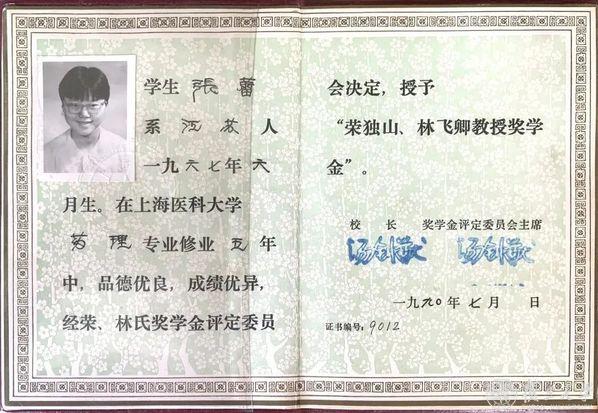 学生 張蕾
系 江苏 人
一九六七年 六
月生。在上海医科大学
药理 专业修业 五 年
中，品德优良，成绩优异，
经荣、林氏奖学金评定委员
会决定，授予
“荣独山、林飞卿教授奖学
金”。
校 长 奖学金评定委员会主席
汤钊猷 汤钊猷
一九九〇年 七 月 日
证书编号：9012